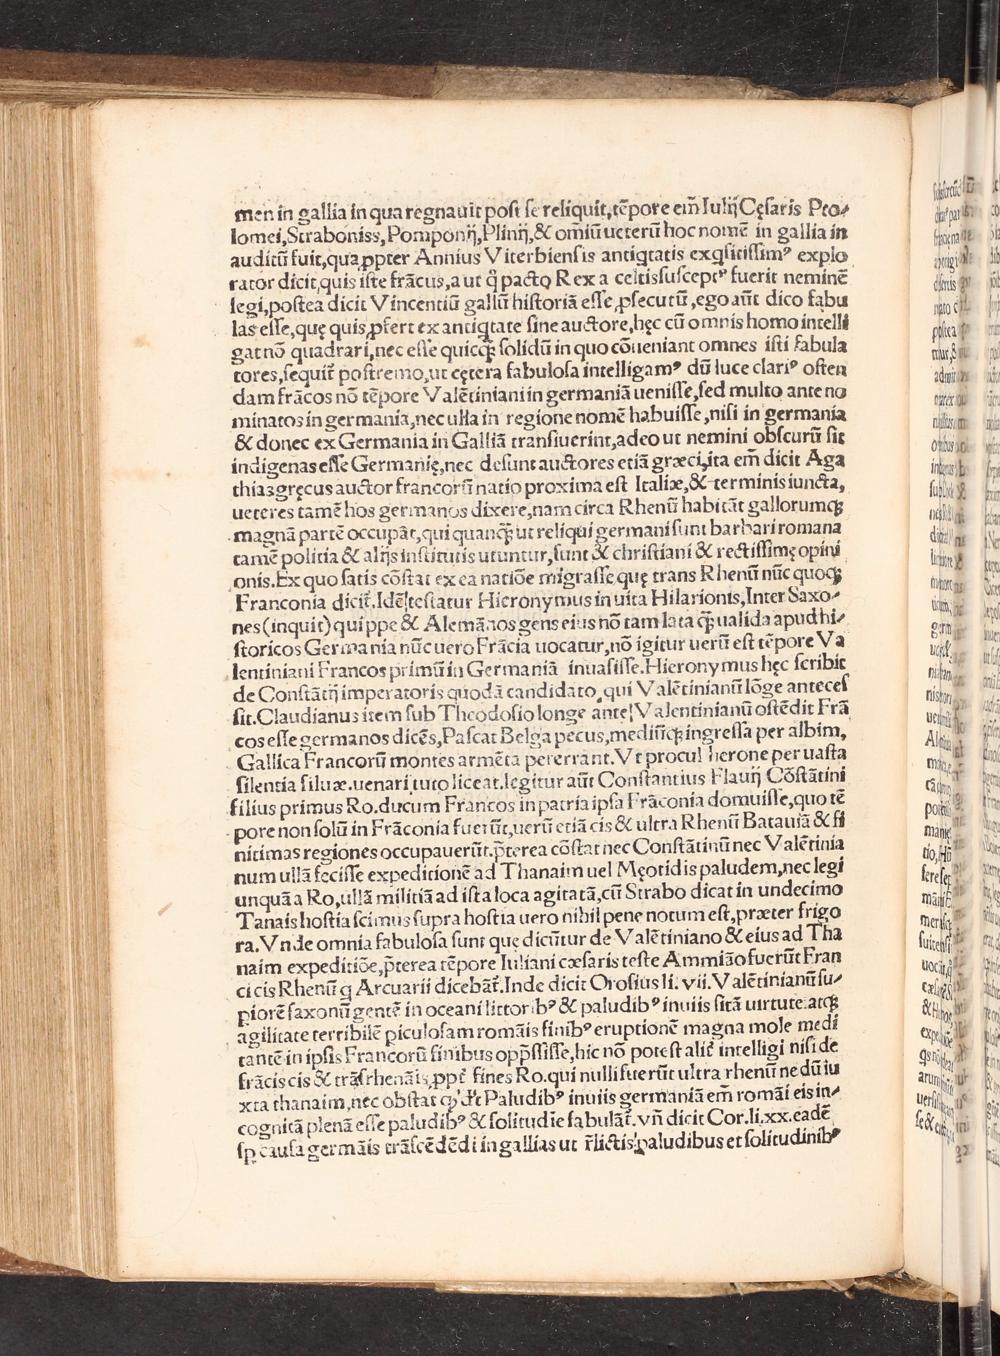 men in gallia in qua regnauit post se reliquit,tẽpore em̃ Iulij Cęsaris Pto⸗
lomei,Straboniss,Pomponij,Plinij,& om̃iũ ueterũ hoc nomẽ in gallia in
auditũ fuit,qua ꝓpter Annius Viterbiensis antiqtatis exqsitissimꝰ explo
rator dicit,quis iste frãcus,a ut q̃ pacto Rex a celtis susceptꝰ fuerit neminẽ
legi,postea dicit Vincentiũ gallũ historiã esse ꝓsecutũ,ego aũt dico fabu
las esse,quę quis ꝓfert ex antiqtate sine auctore,hęc cũ omnis homo intelli
gat nõ quadrari,nec esse quicq̃ȝ solidũ in quo cõueniant omnes isti fabula
tores,sequit̃ postremo,ut cętera fabulosa intelligamꝰ dũ luce clariꝰ osten
dam frãcos nõ tẽpore Valẽtiniani in germaniã uenisse,sed multo ante no
minatos in germania,nec ulla in regione nomẽ habuisse,nisi in germania
& donec ex Germania in Galliã transiuerint,adeo ut nemini obscurũ sit
indigenas esse Germanię,nec desunt auctores etiã græci,ita em̃ dicit Aga
thias gręcus auctor francorũ natio proxima est Italiæ,& terminis iuncta,
ueteres tamẽ hos germanos dixere,nam circa Rhenũ habitãt gallorumqȝ
magnã partẽ occupãt,qui quanq̃ȝ ut reliqui germani sunt barbari romana
tamẽ politia & alijs institutis utuntur,sunt & christiani & rectissimę opini
onis.Ex quo satis cõstat ex ea natiõe migrasse quę trans Rhenũ nũc quoqȝ
Franconia dicit̃.Idẽ testatur Hieronymus in uita Hilarionis,Inter Saxo⸗
nes(inquit)quippe & Alemãnos gens eius nõ tam lata q̃ȝ ualida apud hi⸗
storicos Germania nũc uero Frãcia uocatur,nõ igitur uerũ est tẽpore Va
lentiniani Francos primũ in Germaniã inuasisse.Hieronymus hęc scribit
de Constãtij imperatoris quodã candidato,qui Valẽtinianũ lõge anteces
sit.Claudianus item sub Theodosio longe ante Valentinianũ ostẽdit Frã
cos esse germanos dicẽs,Pascat Belga pecus,mediũqȝ ingressa per albim,
Gallica Francorũ montes armẽta pererrant.Vt procul herone per uasta
silentia siluæ.uenari tuto liceat.legitur aũt Constantius Flauij Cõstãtini
filius primus Ro.ducum Francos in patria ipsa Frãconia domuisse,quo tẽ
pore non solũ in Frãconia fuerũt,uerũ etiã cis & ultra Rhenũ Batauiã & fi
nitimas regiones occupauerũt.p̃terea cõstat nec Constãtinũ nec Valẽtinia
num ullã fecisse expeditionẽ ad Thanaim uel Męotidis paludem,nec legi
unquã a Ro,ullã militiã ad ista loca agitatã,cũ Strabo dicat in undecimo
Tanais hostia scimus supra hostia uero nihil pene notum est,præter frigo
ra.Vnde omnia fabulosa sunt quę dicũtur de Valẽtiniano & eius ad Tha
naim expeditiõe,p̃terea tẽpore Iuliani cæsaris teste Ammiãо fuerũt Fran
ci cis Rhenũ q Arcuarii dicebãt̃.Inde dicit Orosius li. vii. Valẽtinianũ su⸗
piorẽ saxonũ gentẽ in oceani littoribꝰ & paludibꝰ inuiis sitã uirtute atqȝ
agilitate terribilẽ piculosam romãis finibꝰ eruptionẽ magna mole medi
tantẽ in ipsis Francorũ finibus opp̃ssisse,hic nõ potest alit̃ intelligi nisi de
frãcis cis & trãsrhenãis ꝓpt̃ fines Ro.qui nulli fuerũt ultra rhenũ nedũ iu
xta thanaim,nec obstat ꝙ dr̃t Paludibꝰ inuiis germaniã em̃ romãi eis in⸗
cognitã plenã esse paludibꝰ & solitudĩe fabulãt̃.vñ dicit Cor.li.xx.eadẽ
sꝑ causa germãis trãscẽdẽdi in gallias ut r̃lictis paludibus et solitudinibꝰ